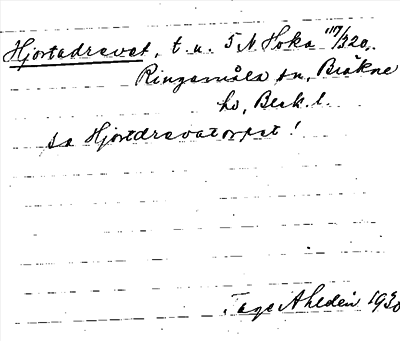 Hjortadravet, t. u. 5 N Hoka 117/320.
Ringamåla sn, Bräkne
hd, Blek. l.
sa Hjortdravatorpet!
Tage Ahldén 1930